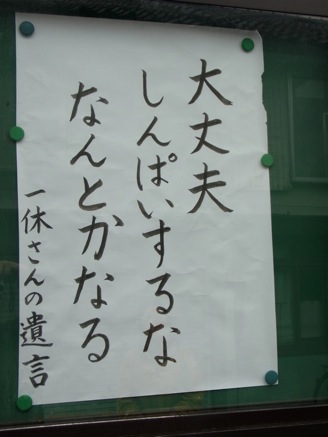 大丈夫
しんぱいするな
なんとかなる
一休さんの遺言